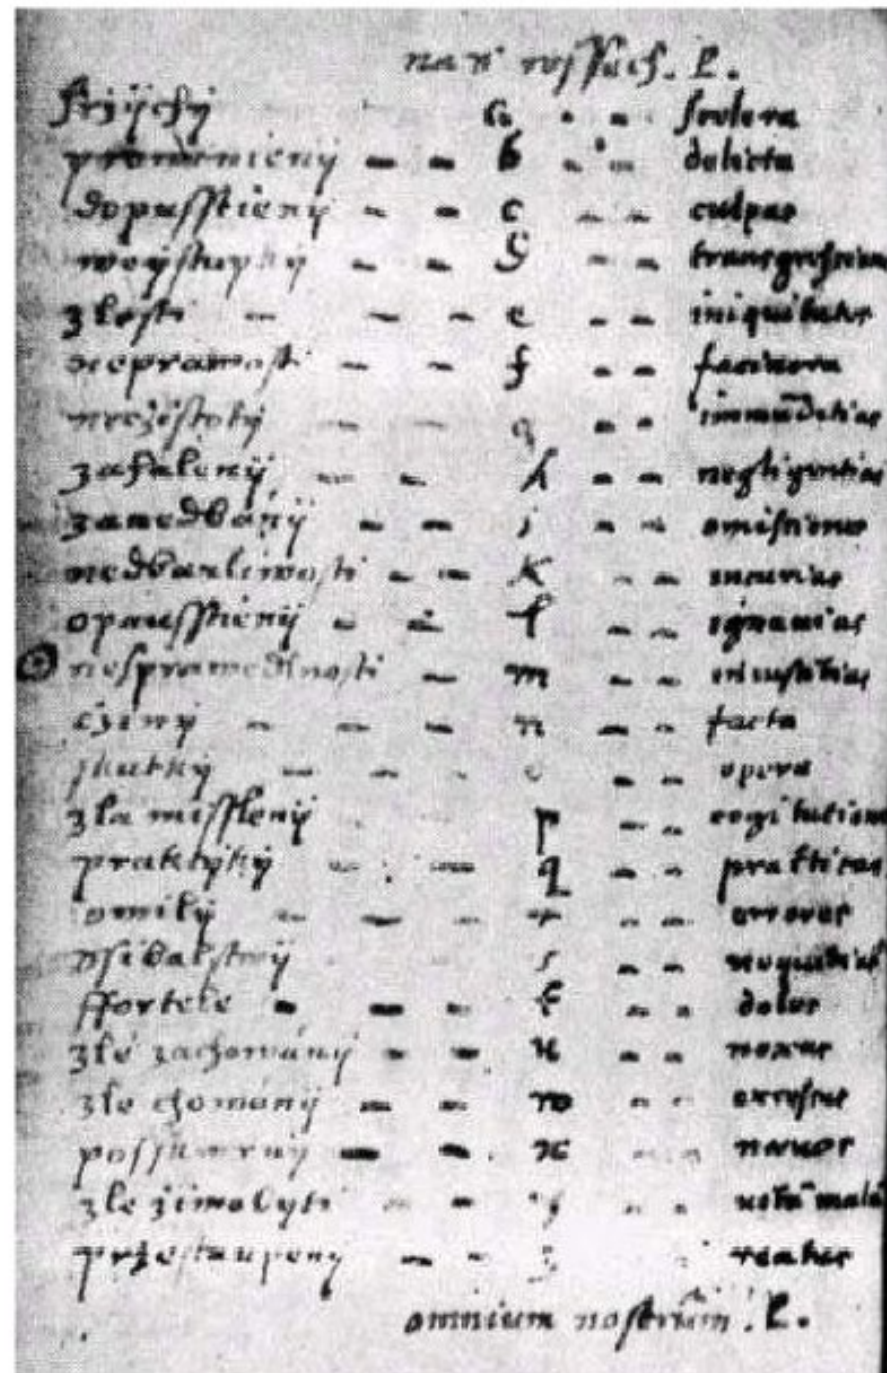 hřijchy - - a - - scelera
promenienij - - b - - delicta
dopusstienij - - c - - culpas
weystupky - - d - - transgressiones
zlosti - - - e - - iniquitates
neprawosti - - f - - facinora
neczistoty - - g - - immūditias
zahálenij - - h - - negligentias
zanedbánij - - i - - omissiones
nedbanliwosti - - k - - incurias
opausstienij - - l - - ignauias
nesprawedlnosti - m - - iniustitias
cziny - - - n - - facta
skutky - - - o - - opera
zla misslenij p - - cogitationes
praktyky - - q - - practicas
omily - - - r - - errores
s - - nequitias
ffortele - - - t - - dolos
zlé zachowánij - - u - - noxas
zle chowánij - - w - -
- - x - - naeuos
zle ziwobyti - - y - - uitā malā
przestaupenij - - z reatus
omnium nostrūm. L.